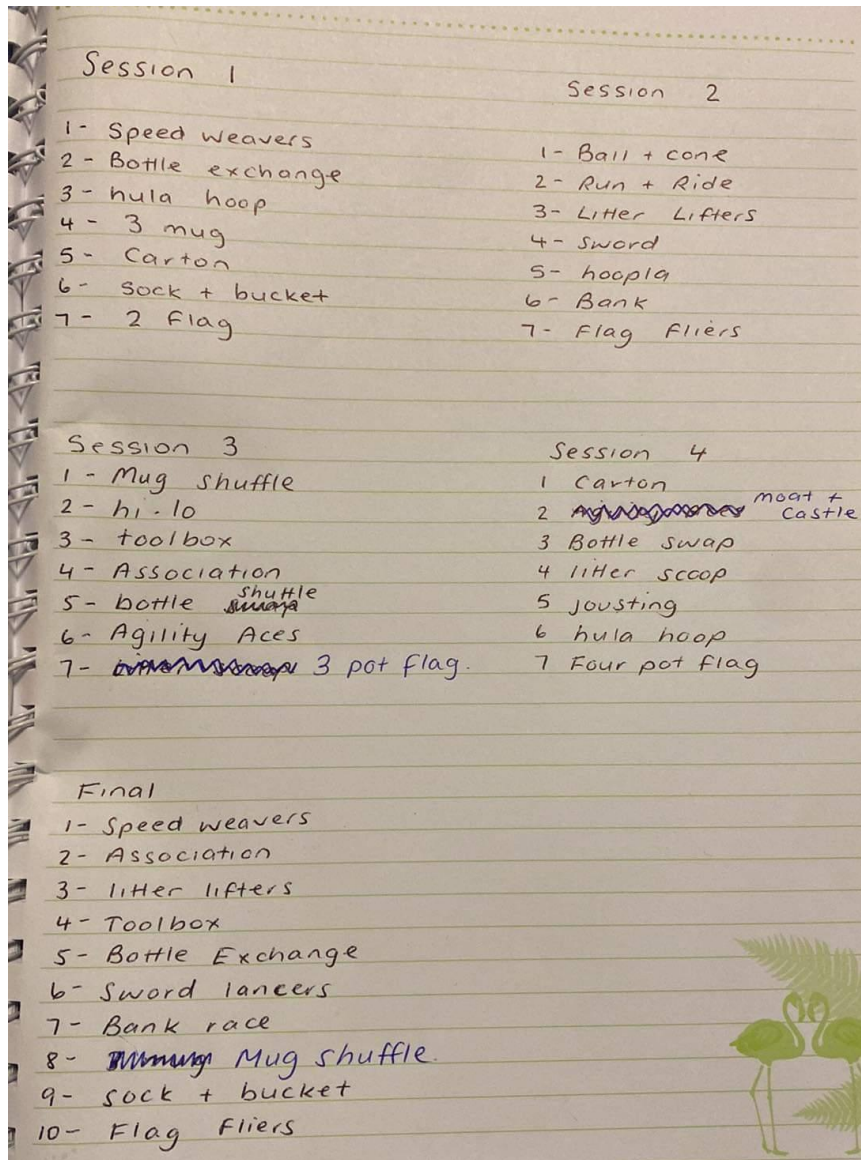 Session 1
1- Speed weavers
2 - Bottle exchange
3 - hula hoop
4 - 3 mug
5 - Carton
6 - Sock + bucket
7 - 2 Flag
Session 2
1- Ball + cone
2 - Run + Ride
3- Litter Lifters
4 - Sword
5- hoopla
6 - Bank
7- Flag Fliers
Session 3
1 - Mug shuffle
2 - hi-lo
3 - toolbox
4 - Association
5 - bottle shuttle
6 - Agility Aces
7 - 3 pot flag.
Session 4
1 Carton
2 moat + castle
3 Bottle swap
4 litter scoop
5 jousting
6 hula hoop
7 Four pot flag
Final
1- Speed weavers
2 - Association
3 - litter lifters
4 - Toolbox
5 - Bottle Exchange
6 - Sword lancers
7 - Bank race
8 - Mug shuffle.
9 - sock + bucket
10 - Flag Fliers